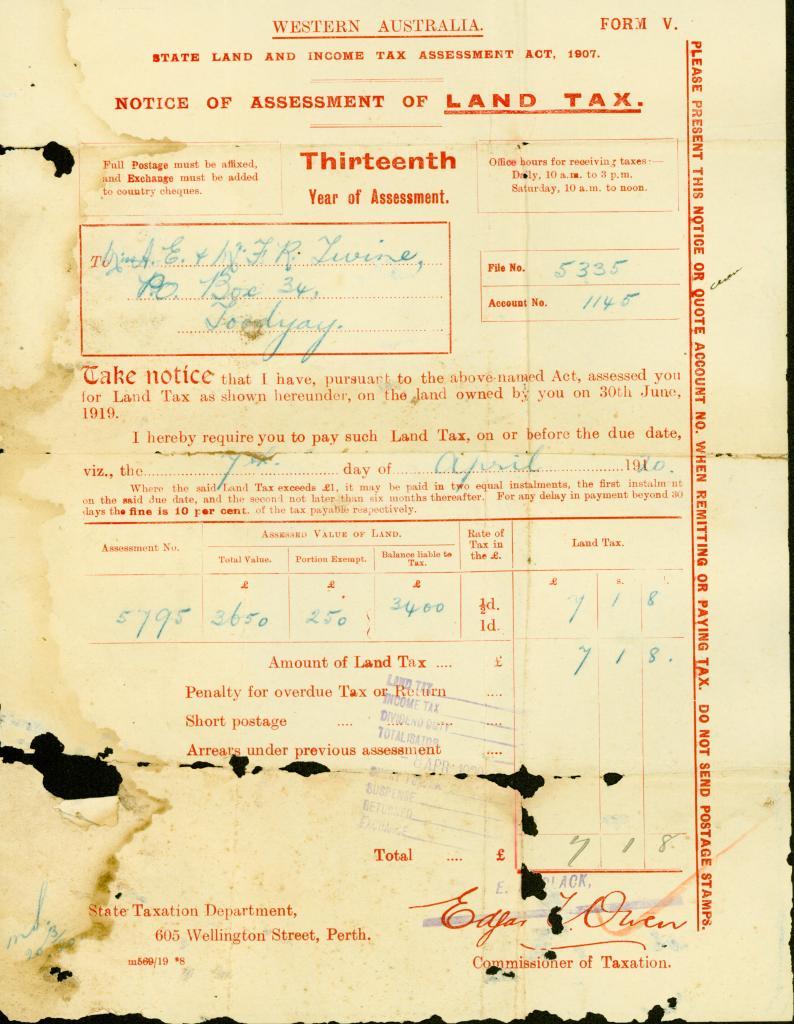 WESTERN AUSTRALIA.
FORM V.
STATE LAND AND INCOME TAX ASSESSMENT ACT, 1907.
NOTICE OF ASSESSMENT OF LAND TAX.
Full Postage must be affixed,
and Exchange must be added
to country cheques.
Thirteenth
Year of Assessment.
Office hours for receiving taxes:—
Daily, 10 a.m. to 3 p.m.
Saturday, 10 a.m. to noon.
To A. E. & W. F. R. Twine,
P.O. Box 34,
Toodyay.
File No. 5335
Account No. 1145
Take notice that I have, pursuant to the above-named Act, assessed you
for Land Tax as shown hereunder, on the land owned by you on 30th June,
1919.
I hereby require you to pay such Land Tax, on or before the due date,
viz., the 7th day of April 1920.
Where the said Land Tax exceeds £1, it may be paid in two equal instalments, the first instalm nt
on the said due date, and the second not later than six months thereafter. For any delay in payment beyond 30
days the fine is 10 per cent. of the tax payable respectively.
Assessment No.
ASSESSED VALUE OF LAND.
Total Value.
Portion Exempt.
Balance liable to
Tax.
Rate of
Tax in
the £.
Land Tax.
£ £ £ £ s.
5795 3650 250 3400 ½d. 7 1 8
1d.
Amount of Land Tax .... £ 7 1 8.
Penalty for overdue Tax or Return ....
Short postage .... .... ....
Arrears under previous assessment ....
LAND TAX
INCOME TAX
DIVIDEND DUTY
TOTALISATOR
8 APR
SUSPENSE
RETURNED
EXCHANGE
Total .... £ 7 1 8
State Taxation Department,
605 Wellington Street, Perth.
m569/19 *8
E. LACK,
Edgar T. Owen
Commissioner of Taxation.
PLEASE PRESENT THIS NOTICE OR QUOTE ACCOUNT NO. WHEN REMITTING OR PAYING TAX. DO NOT SEND POSTAGE STAMPS.